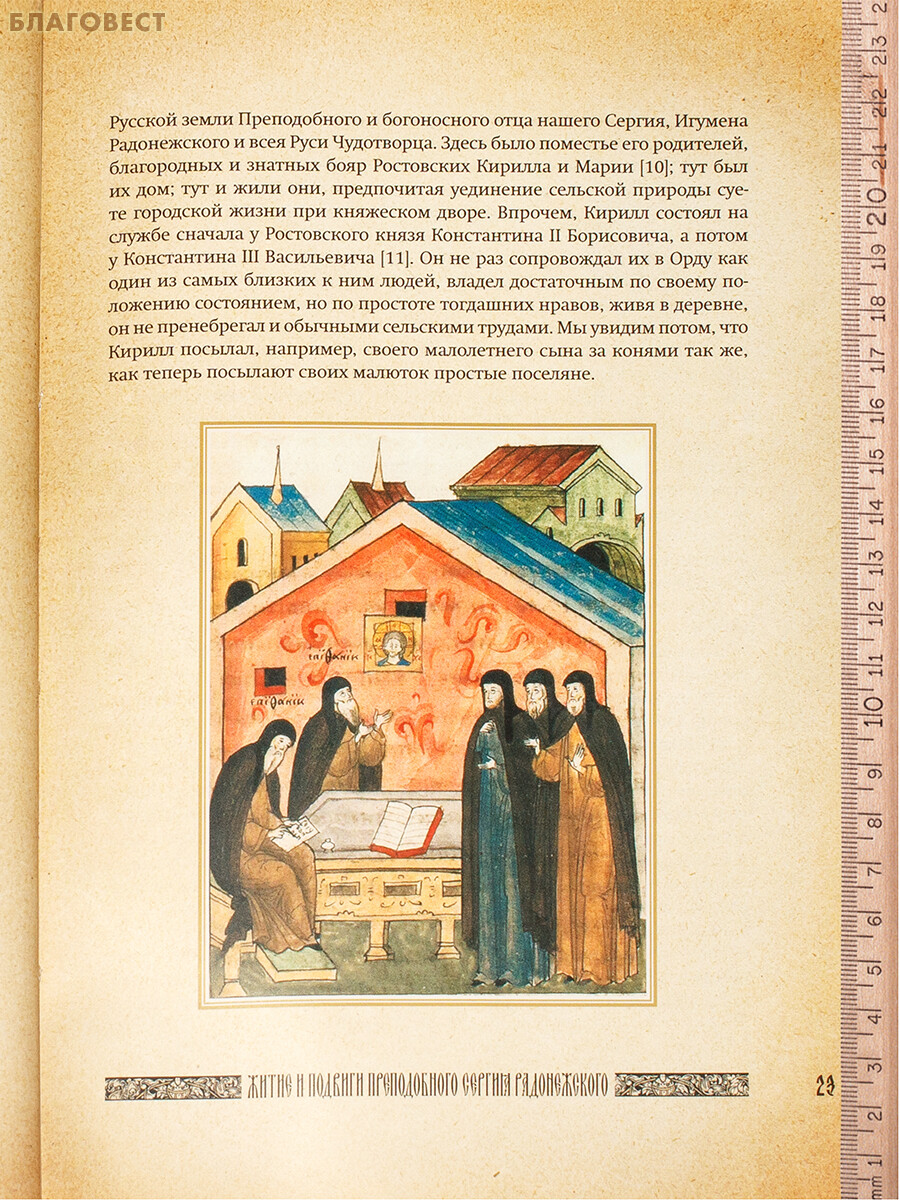 БЛАГОВЕСТ
Русской земли Преподобного и богоносного отца нашего Сергия, Игумена
Радонежского и всея Руси Чудотворца. Здесь было поместье его родителей,
благородных и знатных бояр Ростовских Кирилла и Марии [10]; тут был
их дом; тут и жили они, предпочитая уединение сельской природы суе-
те городской жизни при княжеском дворе. Впрочем, Кирилл состоял на
службе сначала у Ростовского князя Константина II Борисовича, а потом
у Константина III Васильевича [11]. Он не раз сопровождал их в Орду как
один из самых близких к ним людей, владел достаточным по своему по-
ложению состоянием, но по простоте тогдашних нравов, живя в деревне,
он не пренебрегал и обычными сельскими трудами. Мы увидим потом, что
Кирилл посылал, например, своего малолетнего сына за конями так же,
как теперь посылают своих малюток простые поселяне.
ЖИТИЕ И ПОДВИГИ ПРЕПОДОБНОГО СЕРГИЯ РАДОНЕЖСКОГО
23
mm 1 2 3 4 5 6 7 8 9 10 11 12 13 14 15 16 17 18 19 20 21 22 23 2